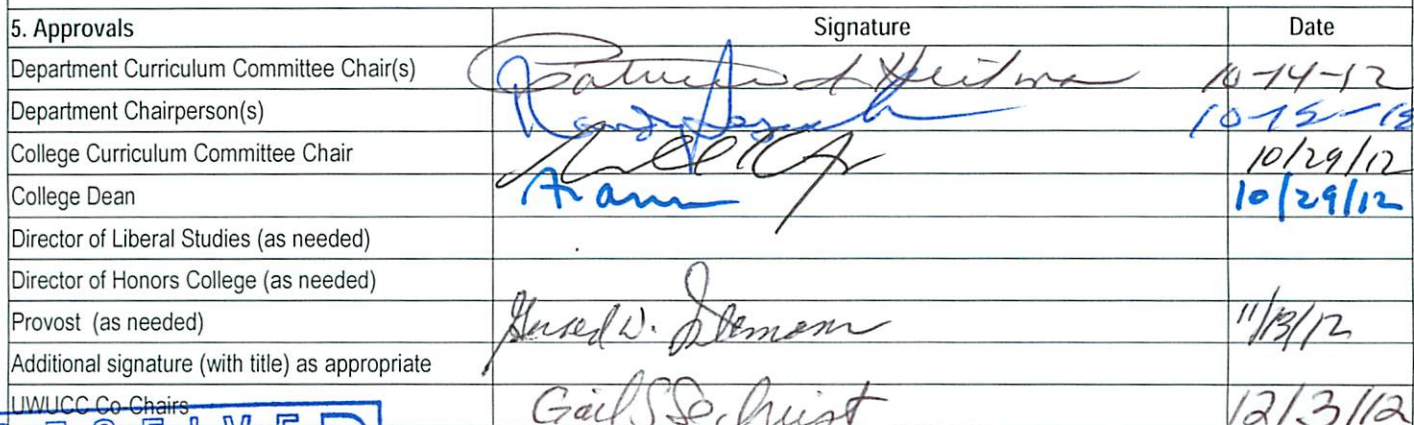 5. Approvals Signature Date
Department Curriculum Committee Chair(s) 10-14-12
Department Chairperson(s) 10-15-12
College Curriculum Committee Chair 10/29/12
College Dean 10/29/12
Director of Liberal Studies (as needed)
Director of Honors College (as needed)
Provost (as needed) 11/13/12
Additional signature (with title) as appropriate
UWUCC Co-Chairs Gail S Sechrist 12/3/12